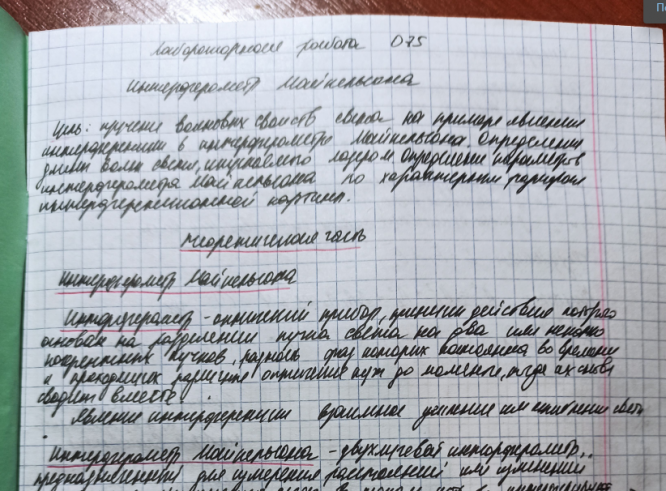 Лабораторная работа О75
Интерферометр Майкельсона
Цель: изучение волновых свойств света на примере явления
интерференции в интерферометре Майкельсона. Определение
длины волны света, испускаемого лазером. Определение параметров
интерферометра Майкельсона по характерным радиусам
интерференционной картины.
теоретическая часть
Интерферометр Майкельсона
Интерферометр - оптический прибор, принцип действия которого
основан на разделении пучка света на два или несколько
когерентных пучков, разность фаз которых постоянна во времени
и проходящих различные оптические пути до момента, когда их снова
сводят вместе.
Явление интерференции взаимное усиление или ослабление света
Интерферометр Майкельсона - двухлучевой интерферометр,
предназначенный для измерения расстояний или изменений